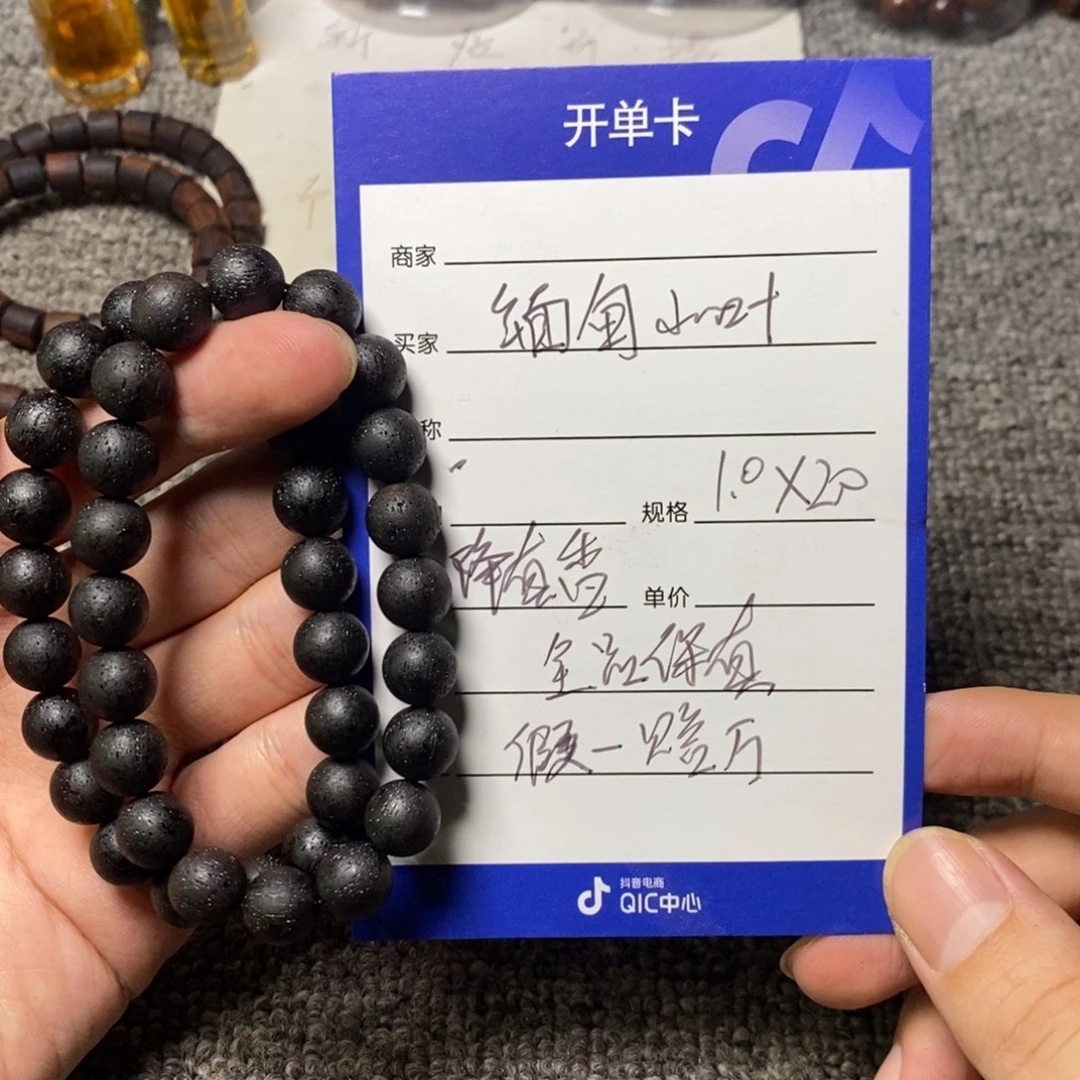 开单卡
商家
买家 缅甸小叶
称
规格 1.0X20
降真香 单价
全品保真
假一赔万
抖音电商
QIC中心